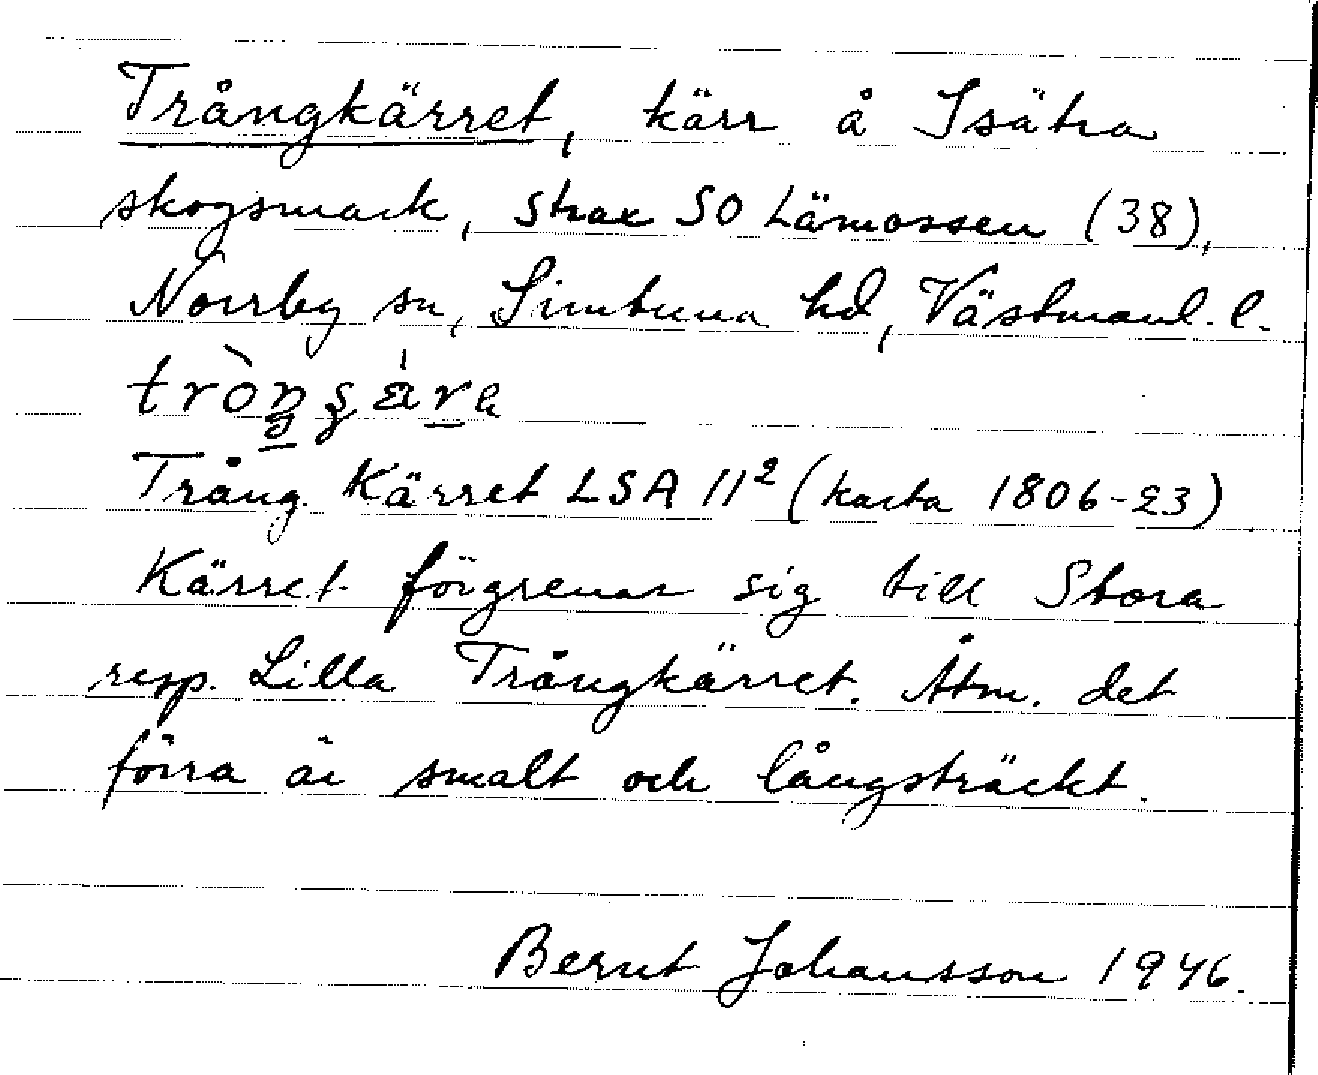 Trångkärret, kärr å Isätra
skogsmark, strax SO Lämossen (38),
Norrby sn, Simtuna hd, Västmanl. l.
Trång Kärret LSA 11² (karta 1806-23)
Kärret förgrenar sig till Stora
resp. Lilla Trångkärret. Åtm. det
förra är smalt och långsträckt.
Bernt Johansson 1946.